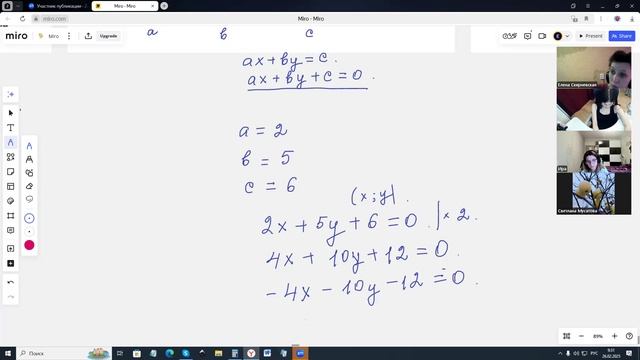 Участник публикации
Miro - Miro
miro.com
Miro - Miro
miro
Miro
Upgrade
Present
Share
a b c
ax+by=c.
ax+by+c=0.
a=2
b=5
c=6
(x;y).
2x+5y+6=0. |×2.
4x+10y+12=0.
-4x-10y-12=0.
Елена Скерневская
Ира
Светлана Мусатова
89%
Поиск
РУС
9:31
26.02.2025